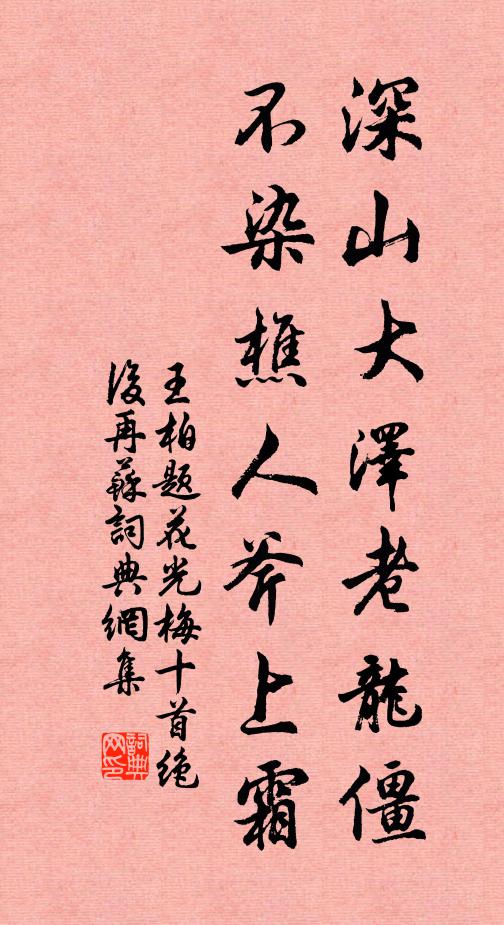 深山大澤老龍僵
不染樵人斧上霜
王柏題花光梅十首絶
後再蘇詞典網集
詞典
网印